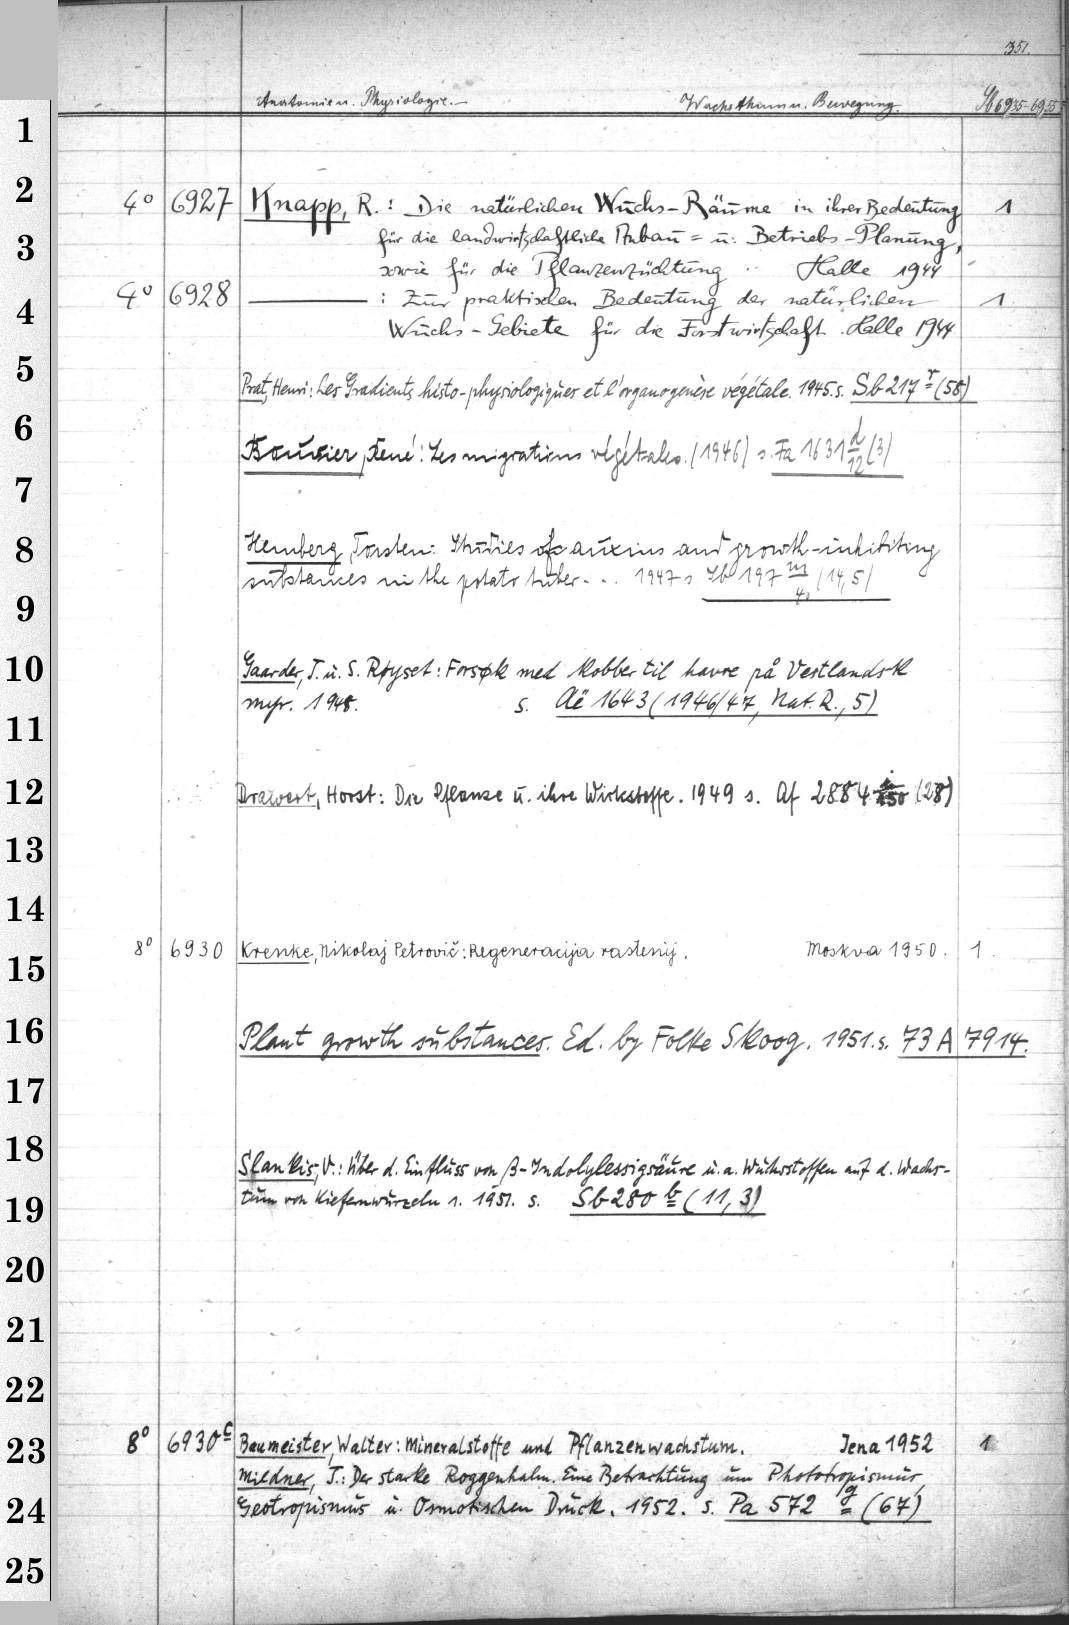 351.
Anatomie u. Physiologie.— Wachsthum u. Bewegung.
1
2
4° 6927 Knapp, R.: Die natürlichen Wuchs-Räume in ihrer Bedeutung 1
3 für die landwirtschaftliche Anbau= u: Betriebs-Planung,
sowie für die Pflanzenzüchtung .. Halle 1944
4 4° 6928 ——— : Zur praktischen Bedeutung der natürlichen 1
Wuchs-Gebiete für die Forstwirtschaft. Halle 1944
5 Prat, Henri: Les Gradients histo-physiologiques et l'organogenèse végétale. 1945. s. Sb 217 r (58)
6 René: Les migrations végétales. (1946) s. Fa 1631 d/12 (3)
7
8 Hemberg, Torsten: Studies of auxins and growth-inhibiting
substances in the potato tuber. .. 1947 s Sb 197 m/4, (14,5)
9
10 Gaarder, T. u. S. Røyset: Forsøk med Kobber til havre på Vestlandsk
myr. 1948. s. Aë 1643 (1946/47, Nat. R., 5)
11
12 Drawert, Horst: Die Pflanze u. ihre Wirkstoffe. 1949 s. Af 2884 (28)
13
14
15 8° 6930 Krenke, Nikolaj Petrovič: Regeneracija rastenij. Moskva 1950. 1
16 Plant growth substances. Ed. by Folke Skoog. 1951. s. 73 A 7914.
17
18 Slankis, V.: Über d. Einfluss von β-Indolylessigsäure u. a. Wuchsstoffen auf d. Wachs-
19 tum von Kiefernwurzeln 1. 1951. s. Sb 280 b (11, 3)
20
21
22
23 8° 6930 c Baumeister, Walter: Mineralstoffe und Pflanzenwachstum. Jena 1952 1
Mildner, T.: Der starke Roggenhalm. Eine Betrachtung um Phototropismus,
24 Geotropismus u. Osmotischen Druck. 1952. s. Pa 572 g (67)
25